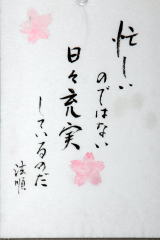 忙しい
のではない
日々充実
しているのだ
法順